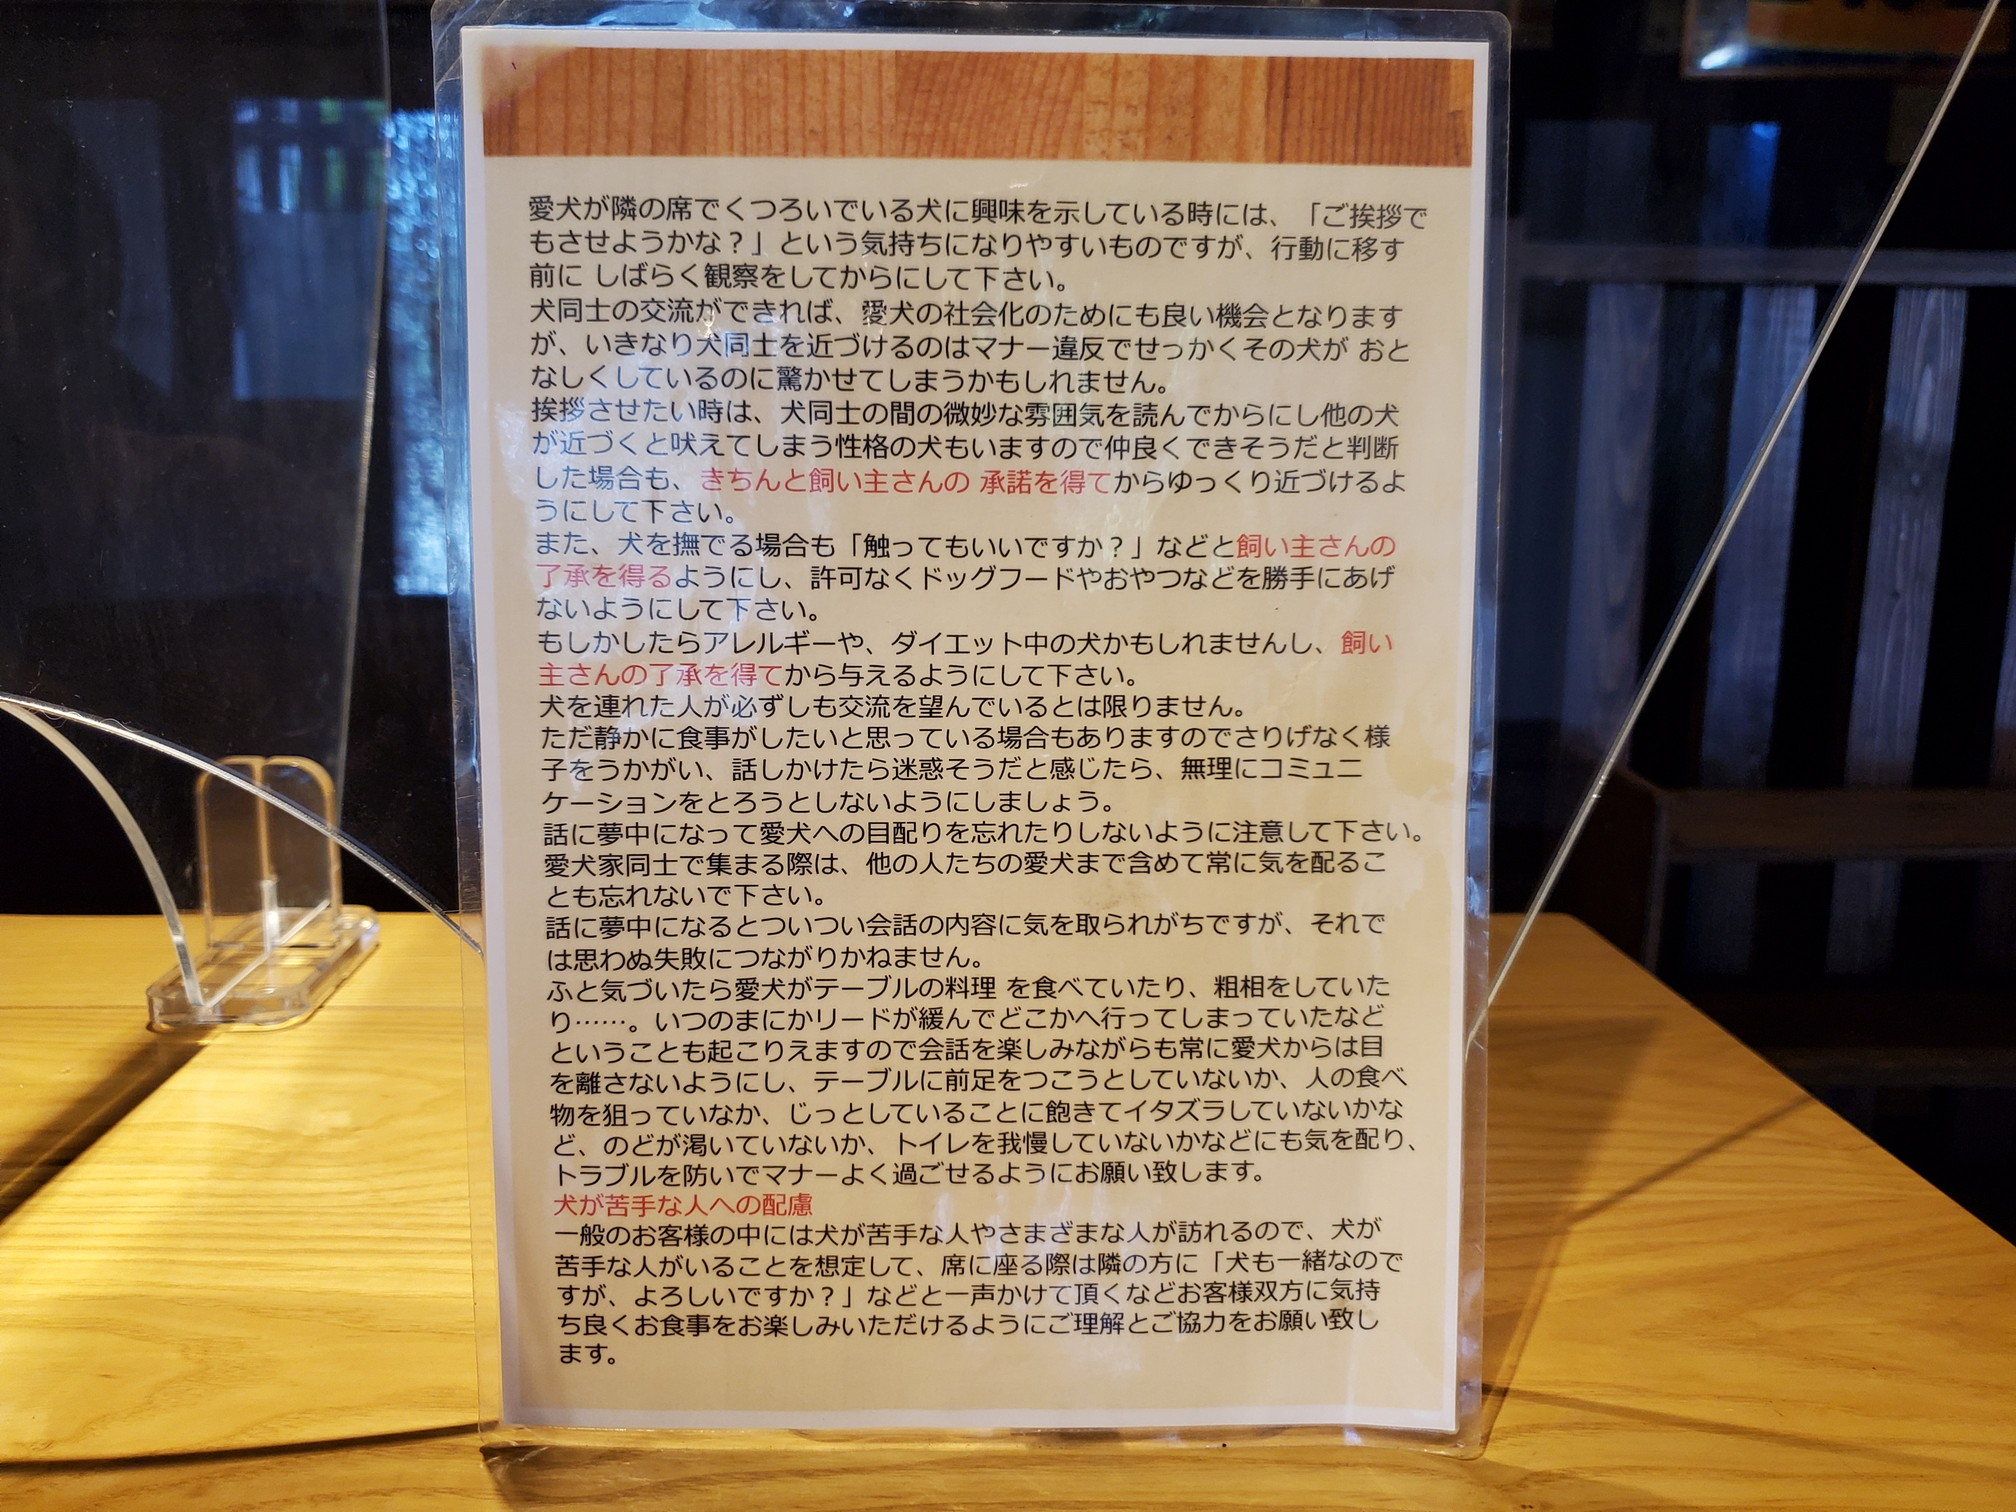 愛犬が隣の席でくつろいでいる犬に興味を示している時には、「ご挨拶で
もさせようかな？」という気持ちになりやすいものですが、行動に移す
前に しばらく観察をしてからにして下さい。
犬同士の交流ができれば、愛犬の社会化のためにも良い機会となります
が、いきなり犬同士を近づけるのはマナー違反でせっかくその犬が おと
なしくしているのに驚かせてしまうかもしれません。
挨拶させたい時は、犬同士の間の微妙な雰囲気を読んでからにし他の犬
が近づくと吠えてしまう性格の犬もいますので仲良くできそうだと判断
した場合も、きちんと飼い主さんの 承諾を得てからゆっくり近づけるよ
うにして下さい。
また、犬を撫でる場合も「触ってもいいですか？」などと飼い主さんの
了承を得るようにし、許可なくドッグフードやおやつなどを勝手にあげ
ないようにして下さい。
もしかしたらアレルギーや、ダイエット中の犬かもしれませんし、飼い
主さんの了承を得てから与えるようにして下さい。
犬を連れた人が必ずしも交流を望んでいるとは限りません。
ただ静かに食事がしたいと思っている場合もありますのでさりげなく様
子をうかがい、話しかけたら迷惑そうだと感じたら、無理にコミュニ
ケーションをとろうとしないようにしましょう。
話に夢中になって愛犬への目配りを忘れたりしないように注意して下さい。
愛犬家同士で集まる際は、他の人たちの愛犬まで含めて常に気を配るこ
とも忘れないで下さい。
話に夢中になるとついつい会話の内容に気を取られがちですが、それで
は思わぬ失敗につながりかねません。
ふと気づいたら愛犬がテーブルの料理 を食べていたり、粗相をしていた
り……。いつのまにかリードが緩んでどこかへ行ってしまっていたなど
ということも起こりえますので会話を楽しみながらも常に愛犬からは目
を離さないようにし、テーブルに前足をつこうとしていないか、人の食べ
物を狙っていなか、じっとしていることに飽きてイタズラしていないかな
ど、のどが渇いていないか、トイレを我慢していないかなどにも気を配り、
トラブルを防いでマナーよく過ごせるようにお願い致します。
犬が苦手な人への配慮
一般のお客様の中には犬が苦手な人やさまざまな人が訪れるので、犬が
苦手な人がいることを想定して、席に座る際は隣の方に「犬も一緒なので
すが、よろしいですか？」などと一声かけて頂くなどお客様双方に気持
ち良くお食事をお楽しみいただけるようにご理解とご協力をお願い致し
ます。